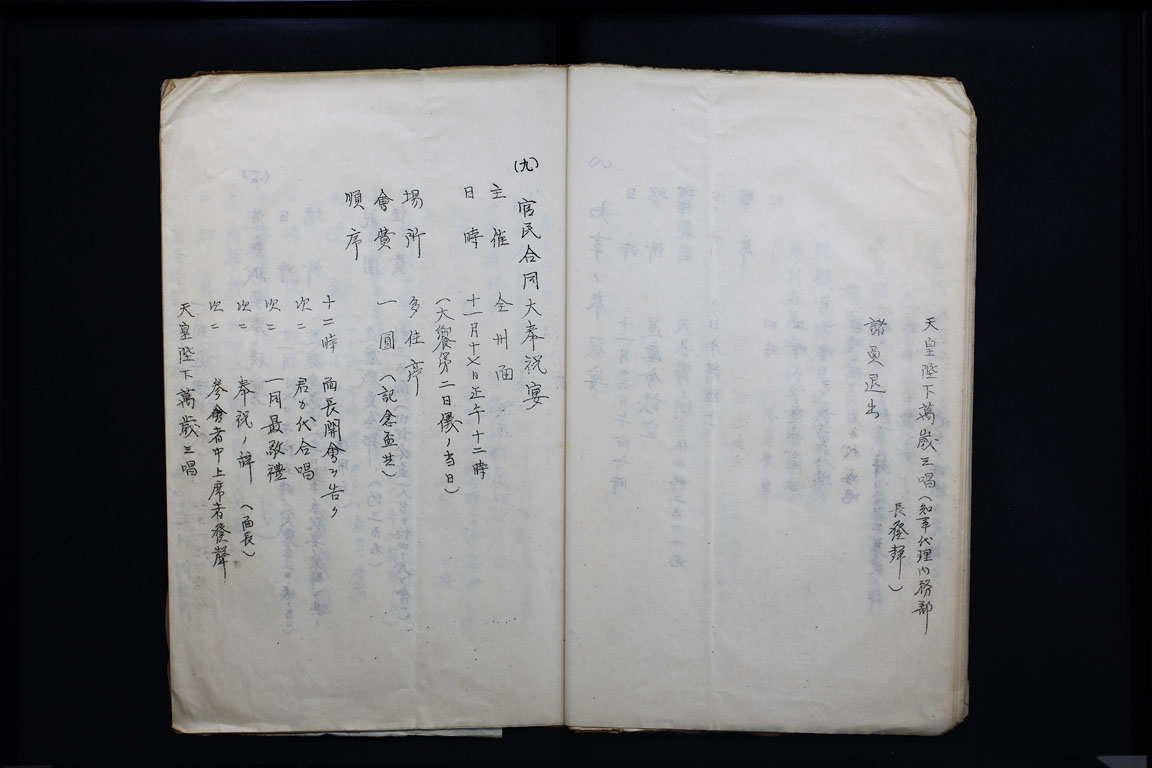 天皇陛下萬歳三唱(知事代理内務部
長發聲)
諸員退出
(九) 官民合同大奉祝宴
主催 全州面
日時 十一月十七日正午十二時
(大饗第二日儀ノ当日)
場所 多佳亭
會費 一圓 (記念盃共)
順序
十二時 面長開會ヲ告ク
次ニ 君カ代合唱
次ニ 一同最敬禮
次ニ 奉祝ノ辞 (面長)
次ニ 参會者中上席者發聲
天皇陛下萬歳三唱